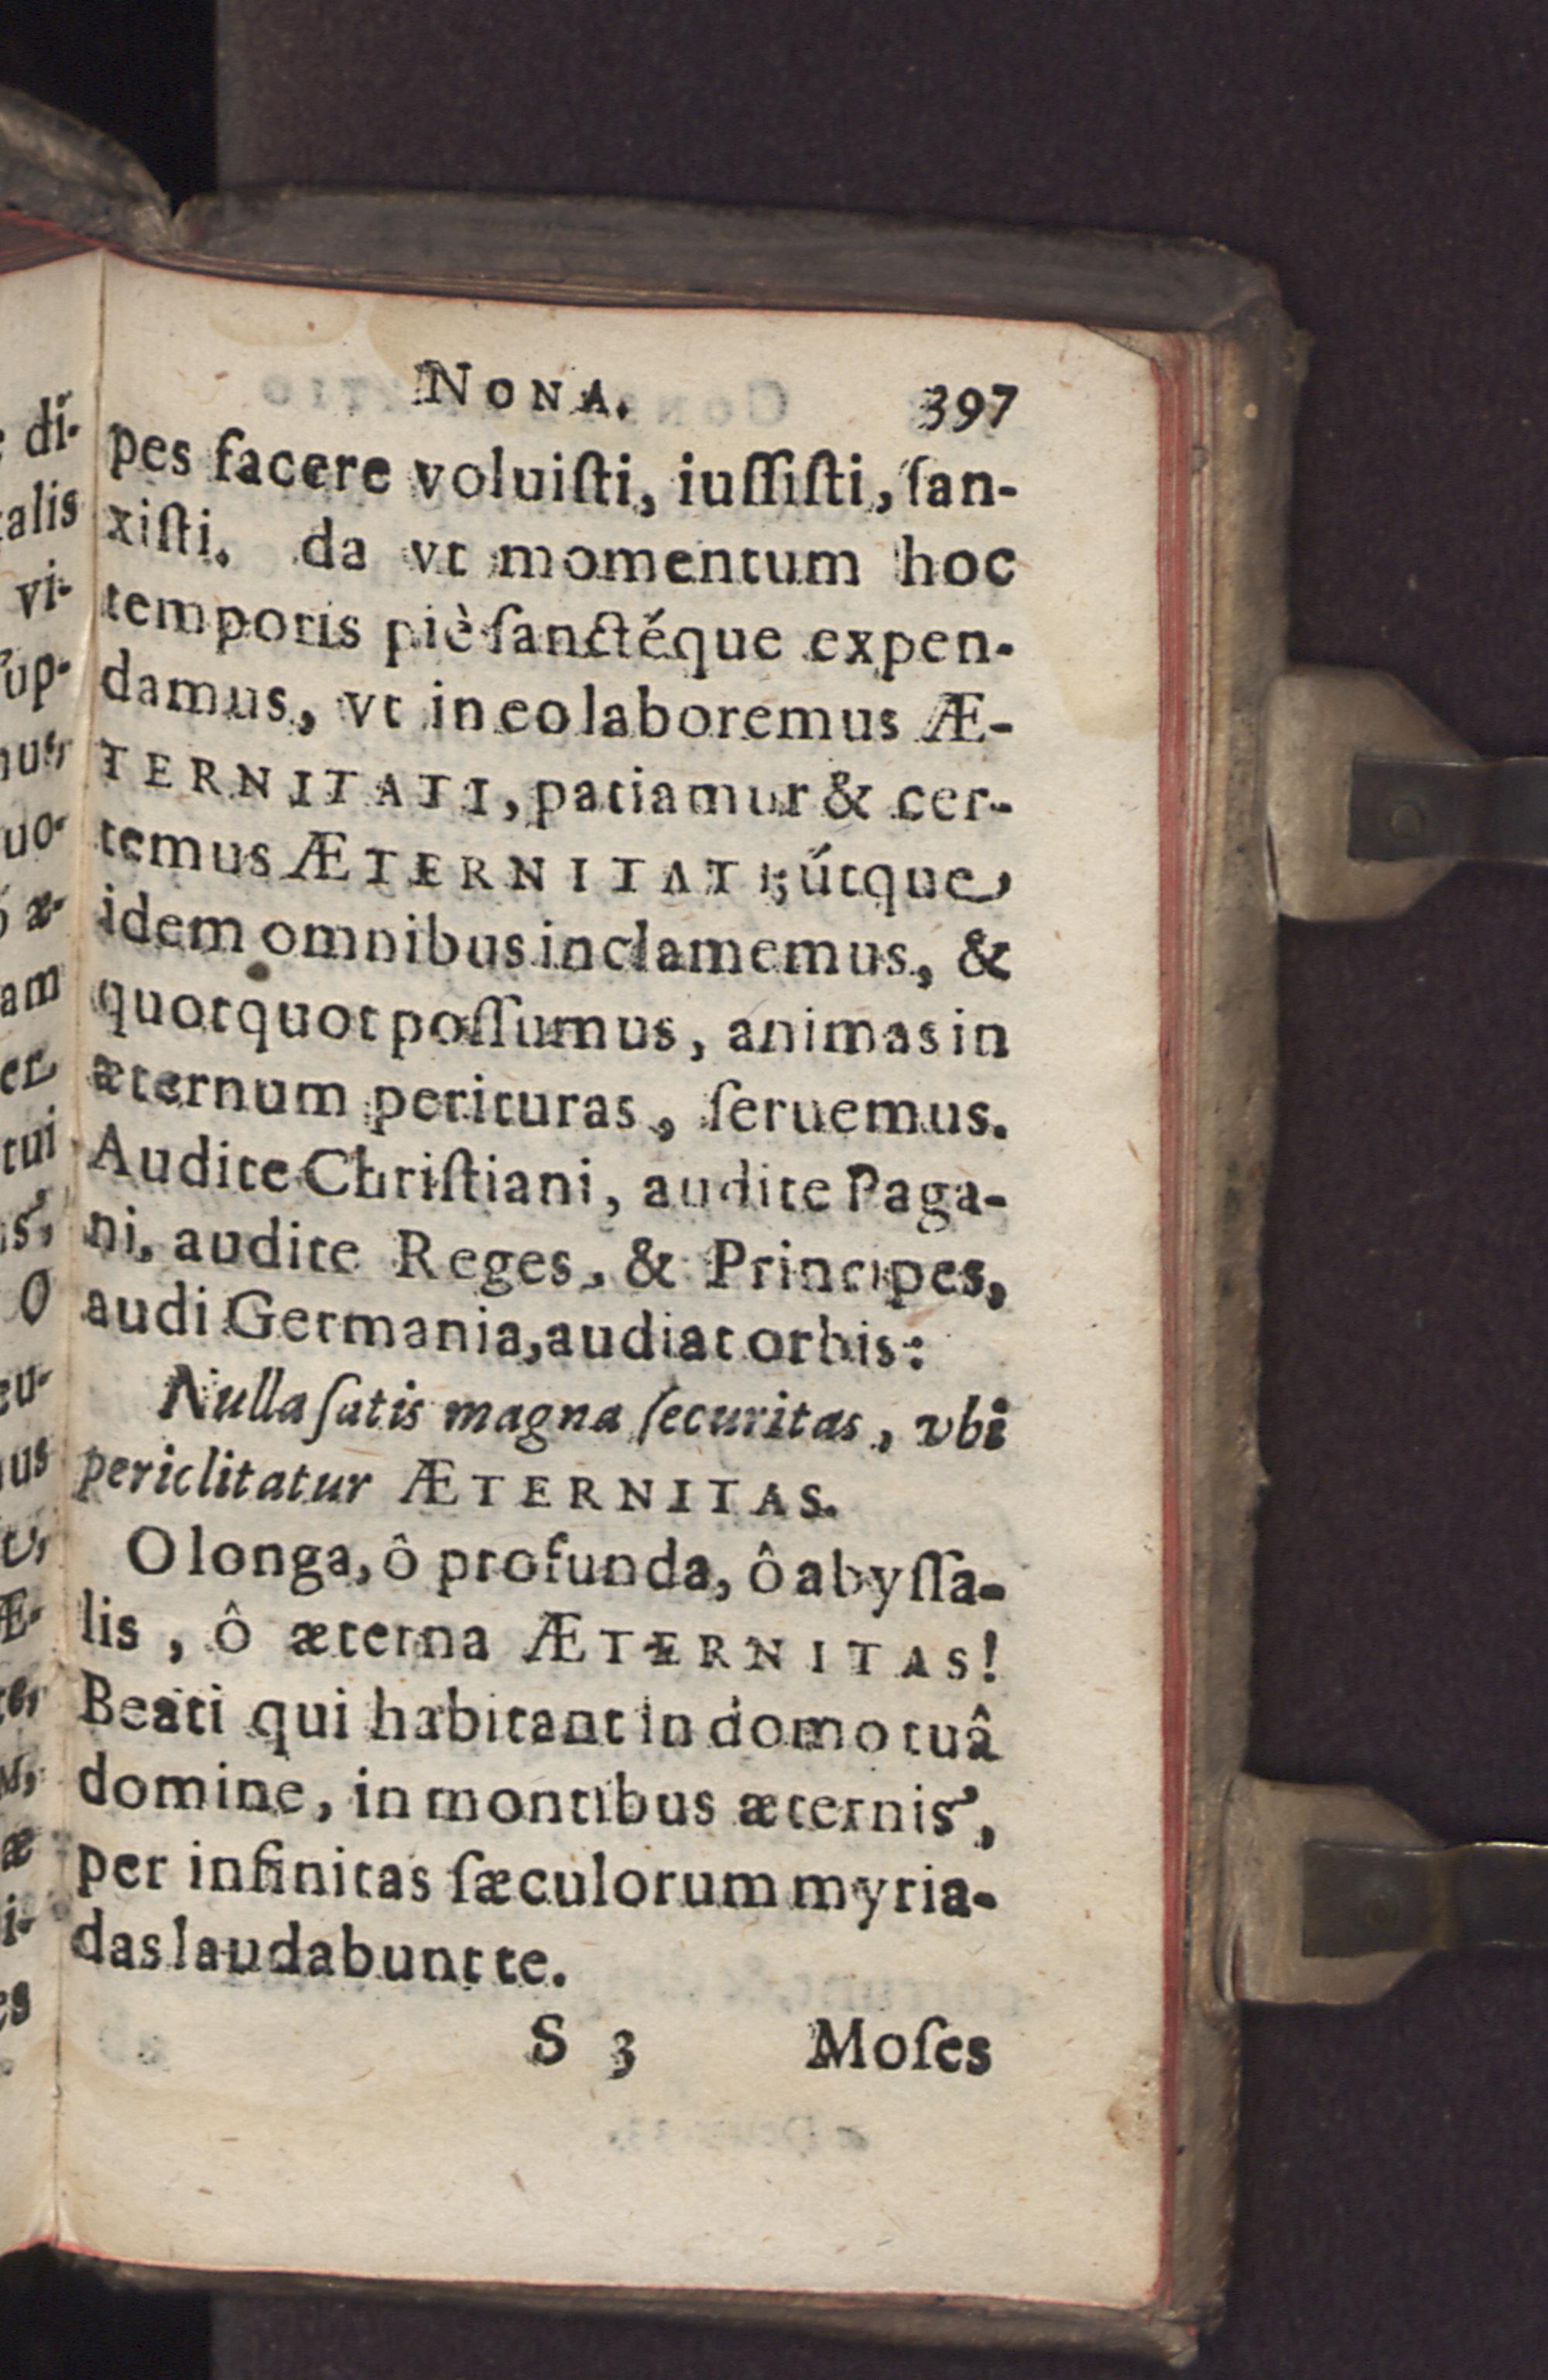 NONA. 397
pes facere voluiſti, iuſſiſti, ſan-
xiſti. da vt momentum hoc
temporis piè ſanctéque expen-
damus, vt in eo laboremus Æ-
TERNITATI, patiamur & cer-
temus ÆTERNITATI; útque
idem omnibus inclamemus, &
quotquot poſſumus, animas in
æternum perituras, ſeruemus.
Audite Chriſtiani, audite Paga-
ni, audite Reges, & Principes,
audi Germania, audiat orbis:
Nulla ſatis magna ſecuritas, vbi
periclitatur ÆTERNITAS.
O longa, ô profunda, ô abyſſa-
lis, ô æterna ÆTERNITAS!
Beati qui habitant in domo tuâ
domine, in montibus æternis,
per infinitas ſæculorum myria-
das laudabunt te.
S 3 Moſes